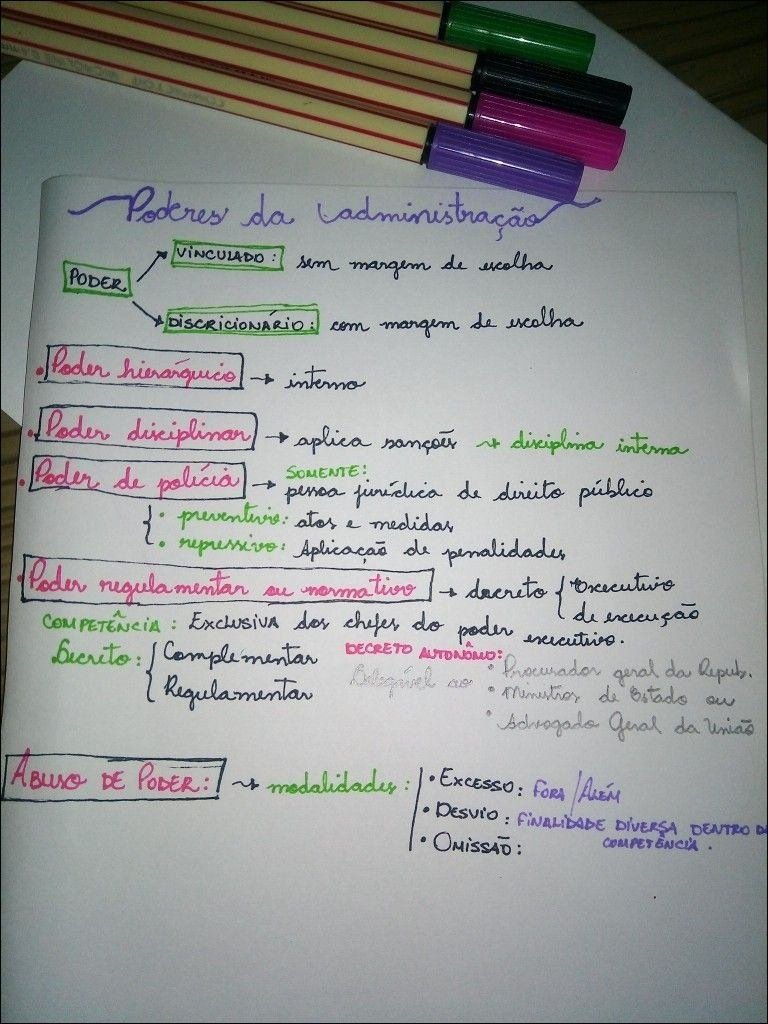 Poderes da administração
PODER
VINCULADO: sem margem de escolha
DISCRICIONÁRIO: com margem de escolha
• Poder hierárquico → interno
• Poder disciplinar → aplica sanções → disciplina interna
• Poder de polícia → SOMENTE:
pessoa jurídica de direito público
• preventivo: atos e medidas
• repressivo: Aplicação de penalidades
• Poder regulamentar ou normativo → decreto { Executivo
de execução
COMPETÊNCIA: EXCLUSIVA dos chefes do poder executivo.
Decreto: { Complementar
Regulamentar
DECRETO AUTONÔMO:
Delegável ao
• Procurador geral da Repub.
• Ministros de Estado ou
• Advogado Geral da União
ABUSO DE PODER: → modalidades:
• EXCESSO: FORA/ALÉM
• DESVIO: FINALIDADE DIVERSA DENTRO
COMPETÊNCIA.
• OMISSÃO: